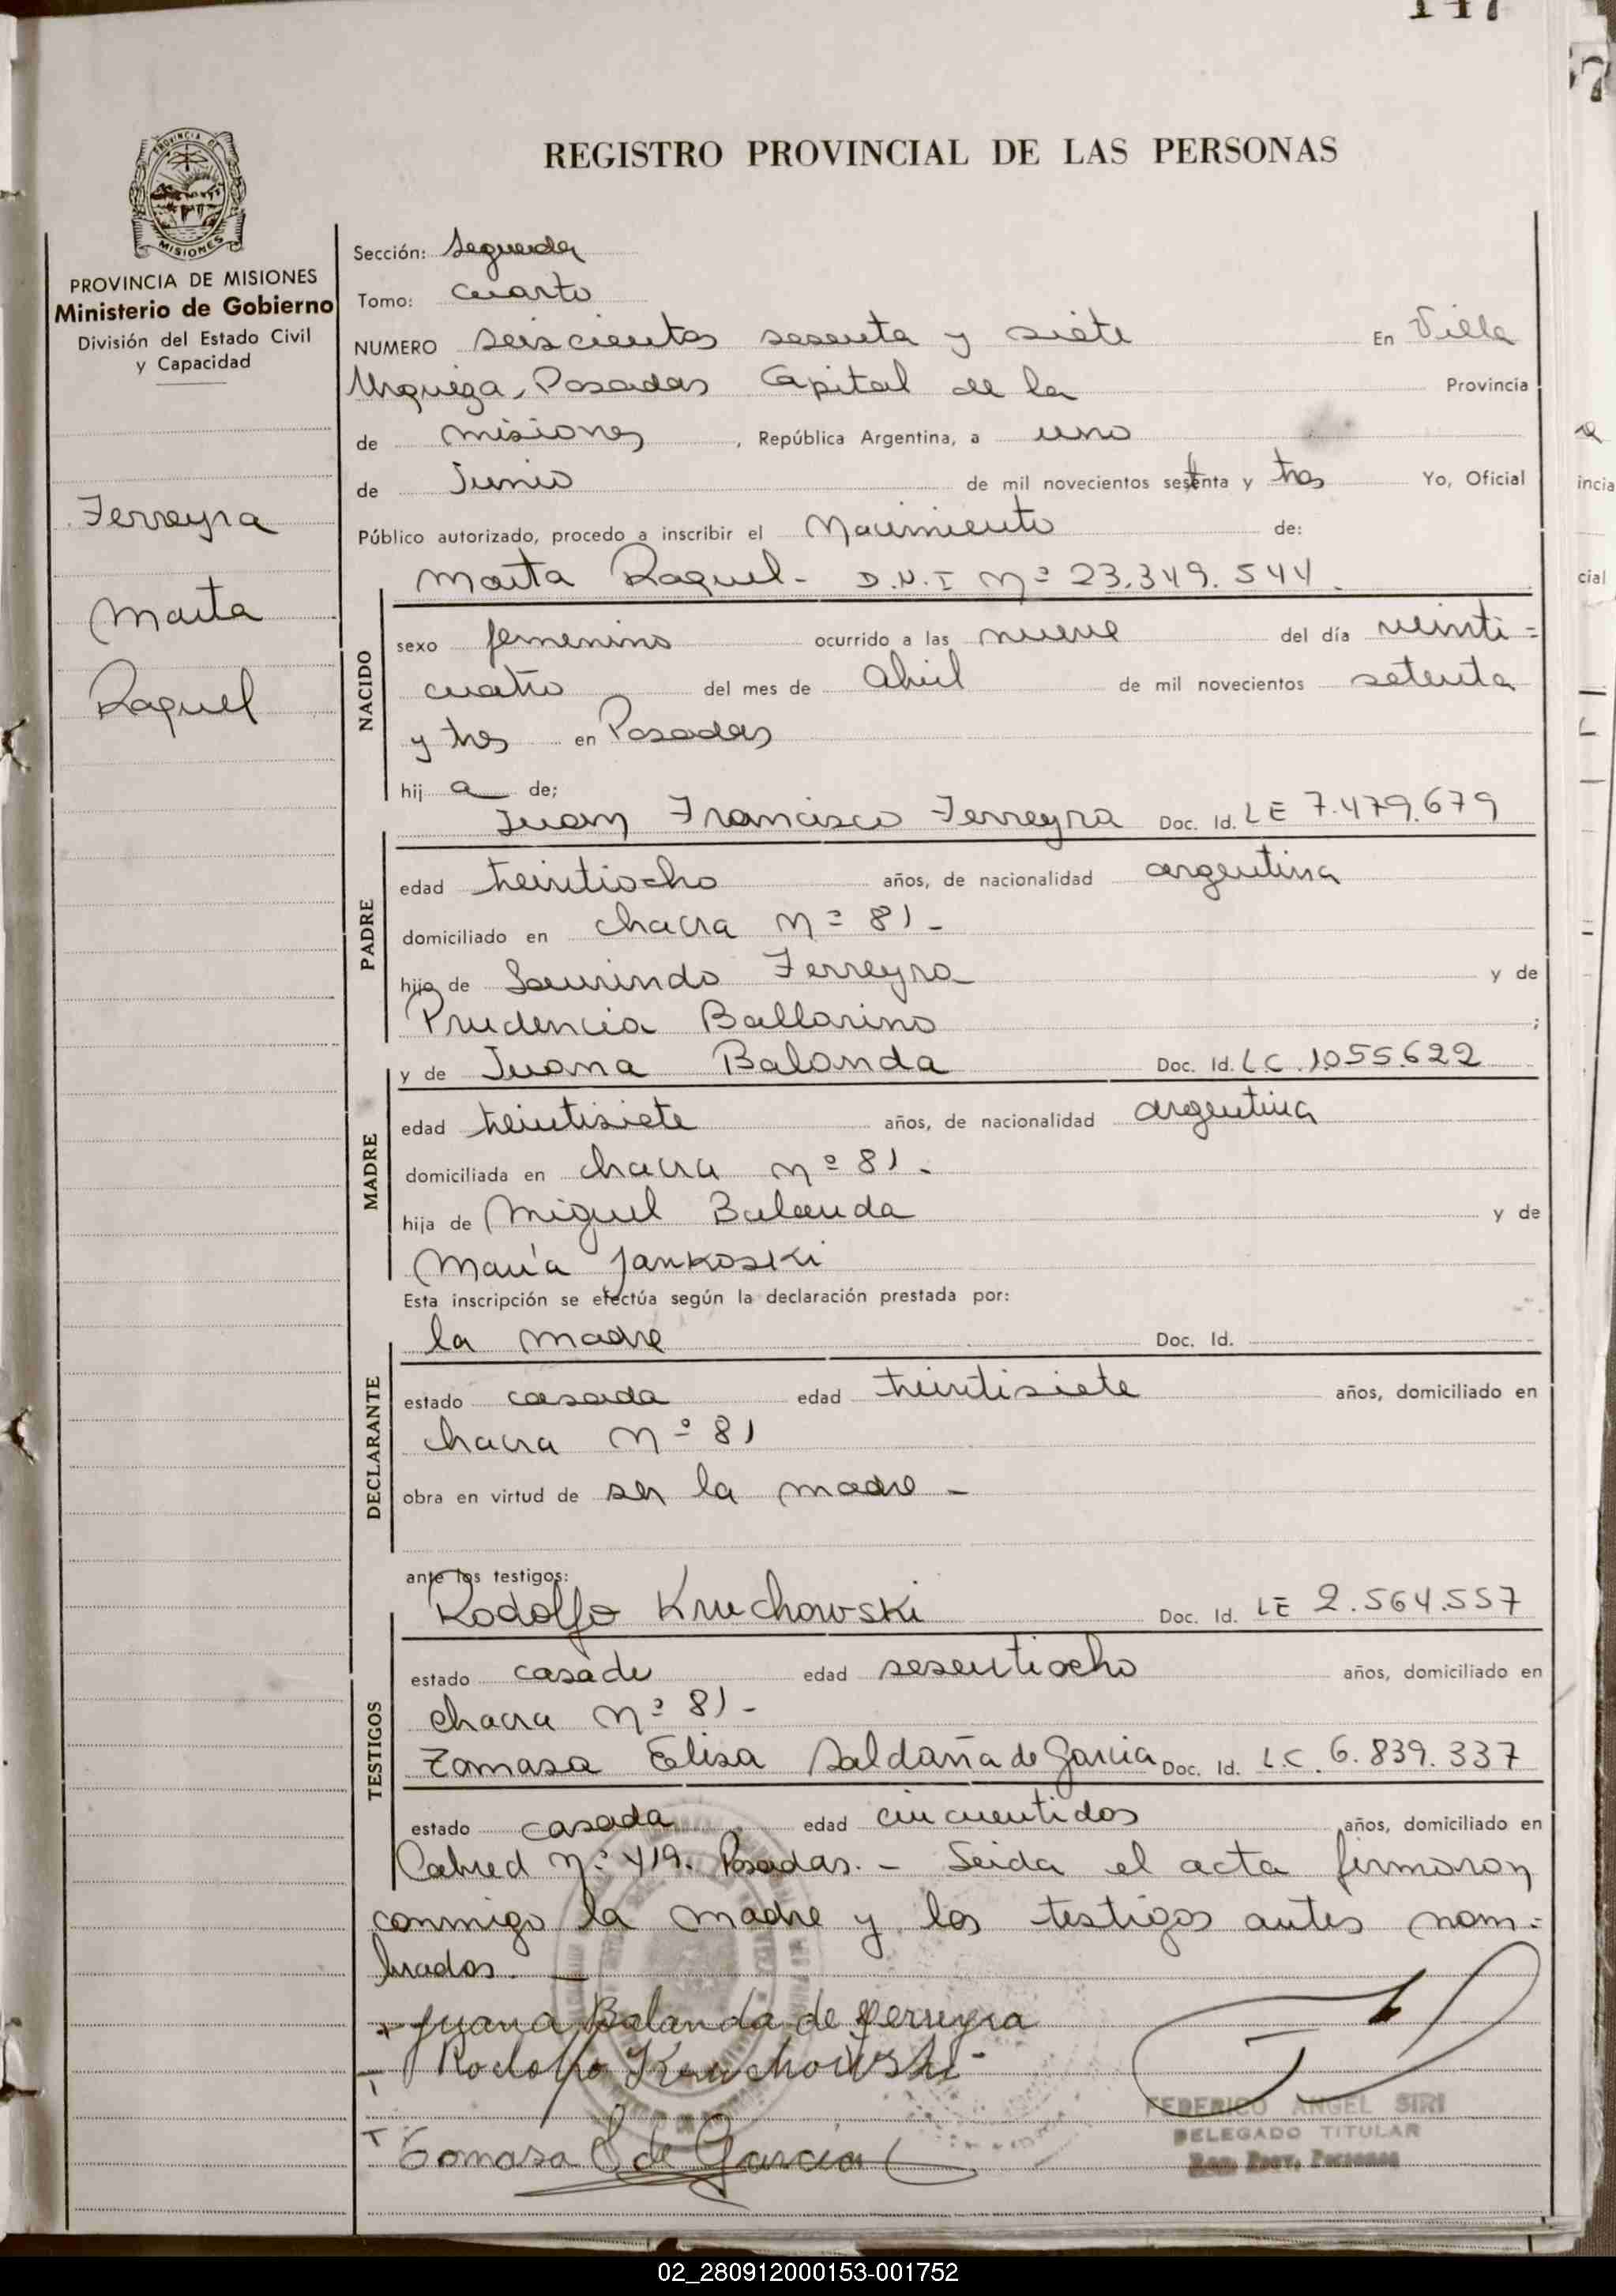 147
REGISTRO PROVINCIAL DE LAS PERSONAS
PROVINCIA DE
MISIONES
PROVINCIA DE MISIONES
Ministerio de Gobierno
División del Estado Civil
y Capacidad
Ferreyra
Marta
Raquel
Sección: Segunda
Tomo: cuarto
NUMERO seiscientos sesenta y siete En Villa
Urquiza, Posadas Capital de la Provincia
de misiones, República Argentina, a uno
de Junio de mil novecientos setenta y tres Yo, Oficial
Público autorizado, procedo a inscribir el Nacimiento de:
Marta Raquel - D.N.I Nº 23.349.544.
NACIDO
sexo femenino ocurrido a las nueve del día veinti=
cuatro del mes de Abril de mil novecientos setenta
y tres en Posadas
hij a de;
Juan Francisco Ferreyra Doc. Id. LE 7.479.679
PADRE
edad treintiocho años, de nacionalidad argentina
domiciliado en chacra Nº 81-
hijo de Laurindo Ferreyra y de
Prudencia Ballarino ;
MADRE
y de Juana Balanda Doc. Id. L.C. 1.055.622
edad treintisiete años, de nacionalidad argentina
domiciliada en chacra nº 81.
hija de Miguel Balanda y de
María Jankoski
Esta inscripción se efectúa según la declaración prestada por:
la madre Doc. Id.
DECLARANTE
estado casada edad treintisiete años, domiciliado en
chacra Nº 81
obra en virtud de ser la madre -
ante los testigos:
Rodolfo Kruchowski Doc. Id. LE 2.564.557
TESTIGOS
estado casado edad sesentiocho años, domiciliado en
chacra Nº 81-
Tomasa Elisa Saldaña de Garcia Doc. Id. L.C. 6.839.337
estado casada edad cincuentidos años, domiciliado en
Cabred Nº 419. Posadas. - Leida el acta firmaron
conmigo la madre y los testigos antes nom=
brados. -
Juana Balanda de Ferreyra
Rodolfo Kruchowski
Tomasa S de Garcia
FEDERICO ANGEL SIRI
DELEGADO TITULAR
Reg. Prov. Personas
02_280912000153-001752